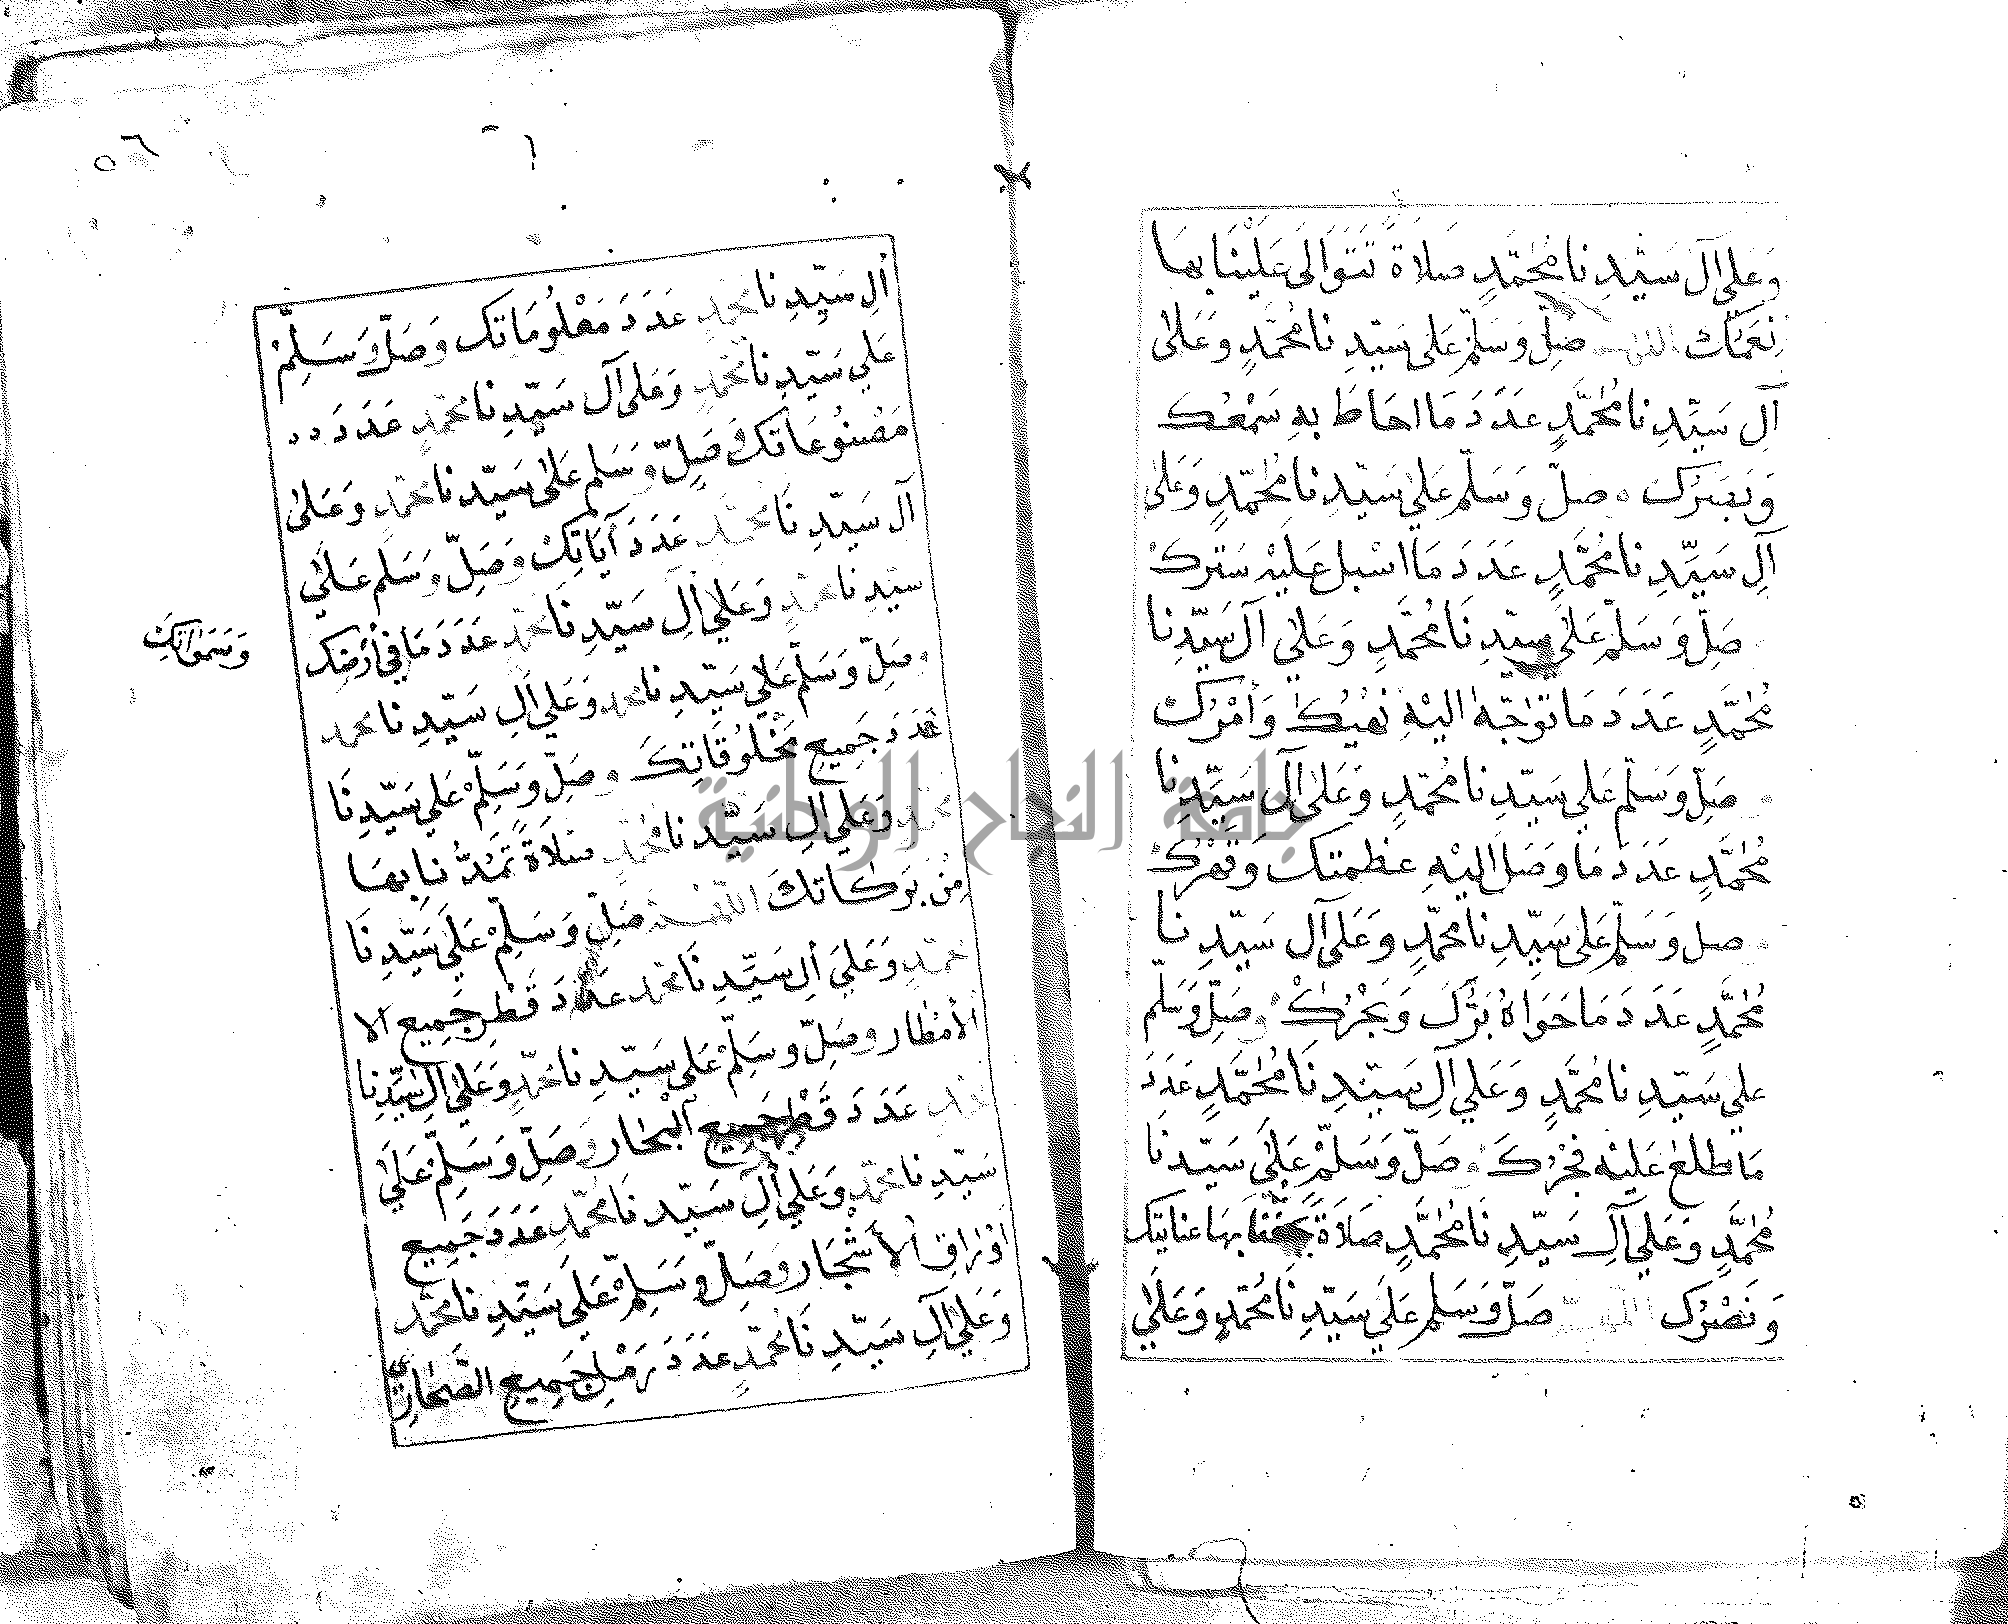 وَعَلَى آلِ سَيِّدِنَا مُحَمَّدٍ صَلَاةً تَتَوَالَى عَلَيْنَا بِهَا
نِعَمُكَ اللهم صَلِّ وَسَلِّمْ عَلَى سَيِّدِنَا مُحَمَّدٍ وَعَلَى
آلِ سَيِّدِنَا مُحَمَّدٍ عَدَدَ مَا احَاطَ بِهِ سَمْعُكَ
وَبَصَرُكَ صَلِّ وَسَلِّمْ عَلَى سَيِّدِنَا مُحَمَّدٍ وَعَلَى
آلِ سَيِّدِنَا مُحَمَّدٍ عَدَدَ مَا اسْبَلَ عَلَيْهِ سَتْرَكَ
صَلِّ وَسَلِّمْ عَلَى سَيِّدِنَا مُحَمَّدٍ وَعَلَى آلِ سَيِّدِنَا
مُحَمَّدٍ عَدَدَ مَا تَوَجَّهَ الَيْهِ نَهْيُكَ وَأَمْرُكَ
صَلِّ وَسَلِّمْ عَلَى سَيِّدِنَا مُحَمَّدٍ وَعَلَى آلِ سَيِّدِنَا
مُحَمَّدٍ عَدَدَ مَا وَصَلَ الَيْهِ عظمتك وَقَهْرُكَ
صل وَسَلِّمْ عَلَى سَيِّدِنَا مُحَمَّدٍ وَعَلَى آلِ سَيِّدِنَا
مُحَمَّدٍ عَدَدَ مَا حَوَاهُ بَرُّكَ وَبَحْرُكَ وَصَلِّ وَسَلِّمْ
عَلَى سَيِّدِنَا مُحَمَّدٍ وَعَلَى آلِ سَيِّدِنَا مُحَمَّدٍ عَدَدَ
مَا طلعَ عَلَيْهِ فَجْرُكَ وَصَلِّ وَسَلِّمْ عَلَى سَيِّدِنَا
مُحَمَّدٍ وَعَلَى آلِ سَيِّدِنَا مُحَمَّدٍ صَلَاةً بِهَا عنايتك
وَنَصْرُكَ اللهم صَلِّ وَسَلِّمْ عَلَى سَيِّدِنَا مُحَمَّدٍ وَعَلَى
٥٦
آلِ سَيِّدِنَا محمد عَدَدَ مَعْلُومَاتِكَ وَصَلِّ وَسَلِّمْ
عَلَى سَيِّدِنَا مُحَمَّدٍ وَعَلَى آلِ سَيِّدِنَا مُحَمَّدٍ عَدَدَ
مَصْنُوعَاتِكَ وَصَلِّ وَسَلِّمْ عَلَى سَيِّدِنَا مُحَمَّدٍ وَعَلَى
آلِ سَيِّدِنَا مُحَمَّدٍ عَدَدَ آيَاتِكَ وَصَلِّ وَسَلِّمْ عَلَى
سَيِّدِنَا محمد وَعَلَى آلِ سَيِّدِنَا محمد عَدَدَ مَا فِي أَرْضِكَ
وَسَمَوَاتِكَ
وَصَلِّ وَسَلِّمْ عَلَى سَيِّدِنَا محمد وَعَلَى آلِ سَيِّدِنَا محمد
عَدَدَ جَمِيعِ مَخْلُوقَاتِكَ وَصَلِّ وَسَلِّمْ عَلَى سَيِّدِنَا
محمد وَعَلَى آلِ سَيِّدِنَا مُحَمَّدٍ صَلَاةً تَمُدُّنَا بِهَا
مِنْ بَرَكَاتِكَ اللهم صَلِّ وَسَلِّمْ عَلَى سَيِّدِنَا
مُحَمَّدٍ وَعَلَى آلِ سَيِّدِنَا محمد عَدَدَ قَطْرِ جَمِيعِ الا
الأَمْطَارِ وَصَلِّ وَسَلِّمْ عَلَى سَيِّدِنَا مُحَمَّدٍ وَعَلَى آلِ سَيِّدِنَا
محمد عَدَدَ قَطْرِ جَمِيعِ الْبِحَارِ وَصَلِّ وَسَلِّمْ عَلَى
سَيِّدِنَا مُحَمَّدٍ وَعَلَى آلِ سَيِّدِنَا مُحَمَّدٍ عَدَدَ جَمِيعِ
أَوْرَاقِ الأَشْجَارِ وَصَلِّ وَسَلِّمْ عَلَى سَيِّدِنَا مُحَمَّدٍ
وَعَلَى آلِ سَيِّدِنَا مُحَمَّدٍ عَدَدَ رَمْلِ جَمِيعِ الصَّحَارِي
جامعة النجاح الوطنية